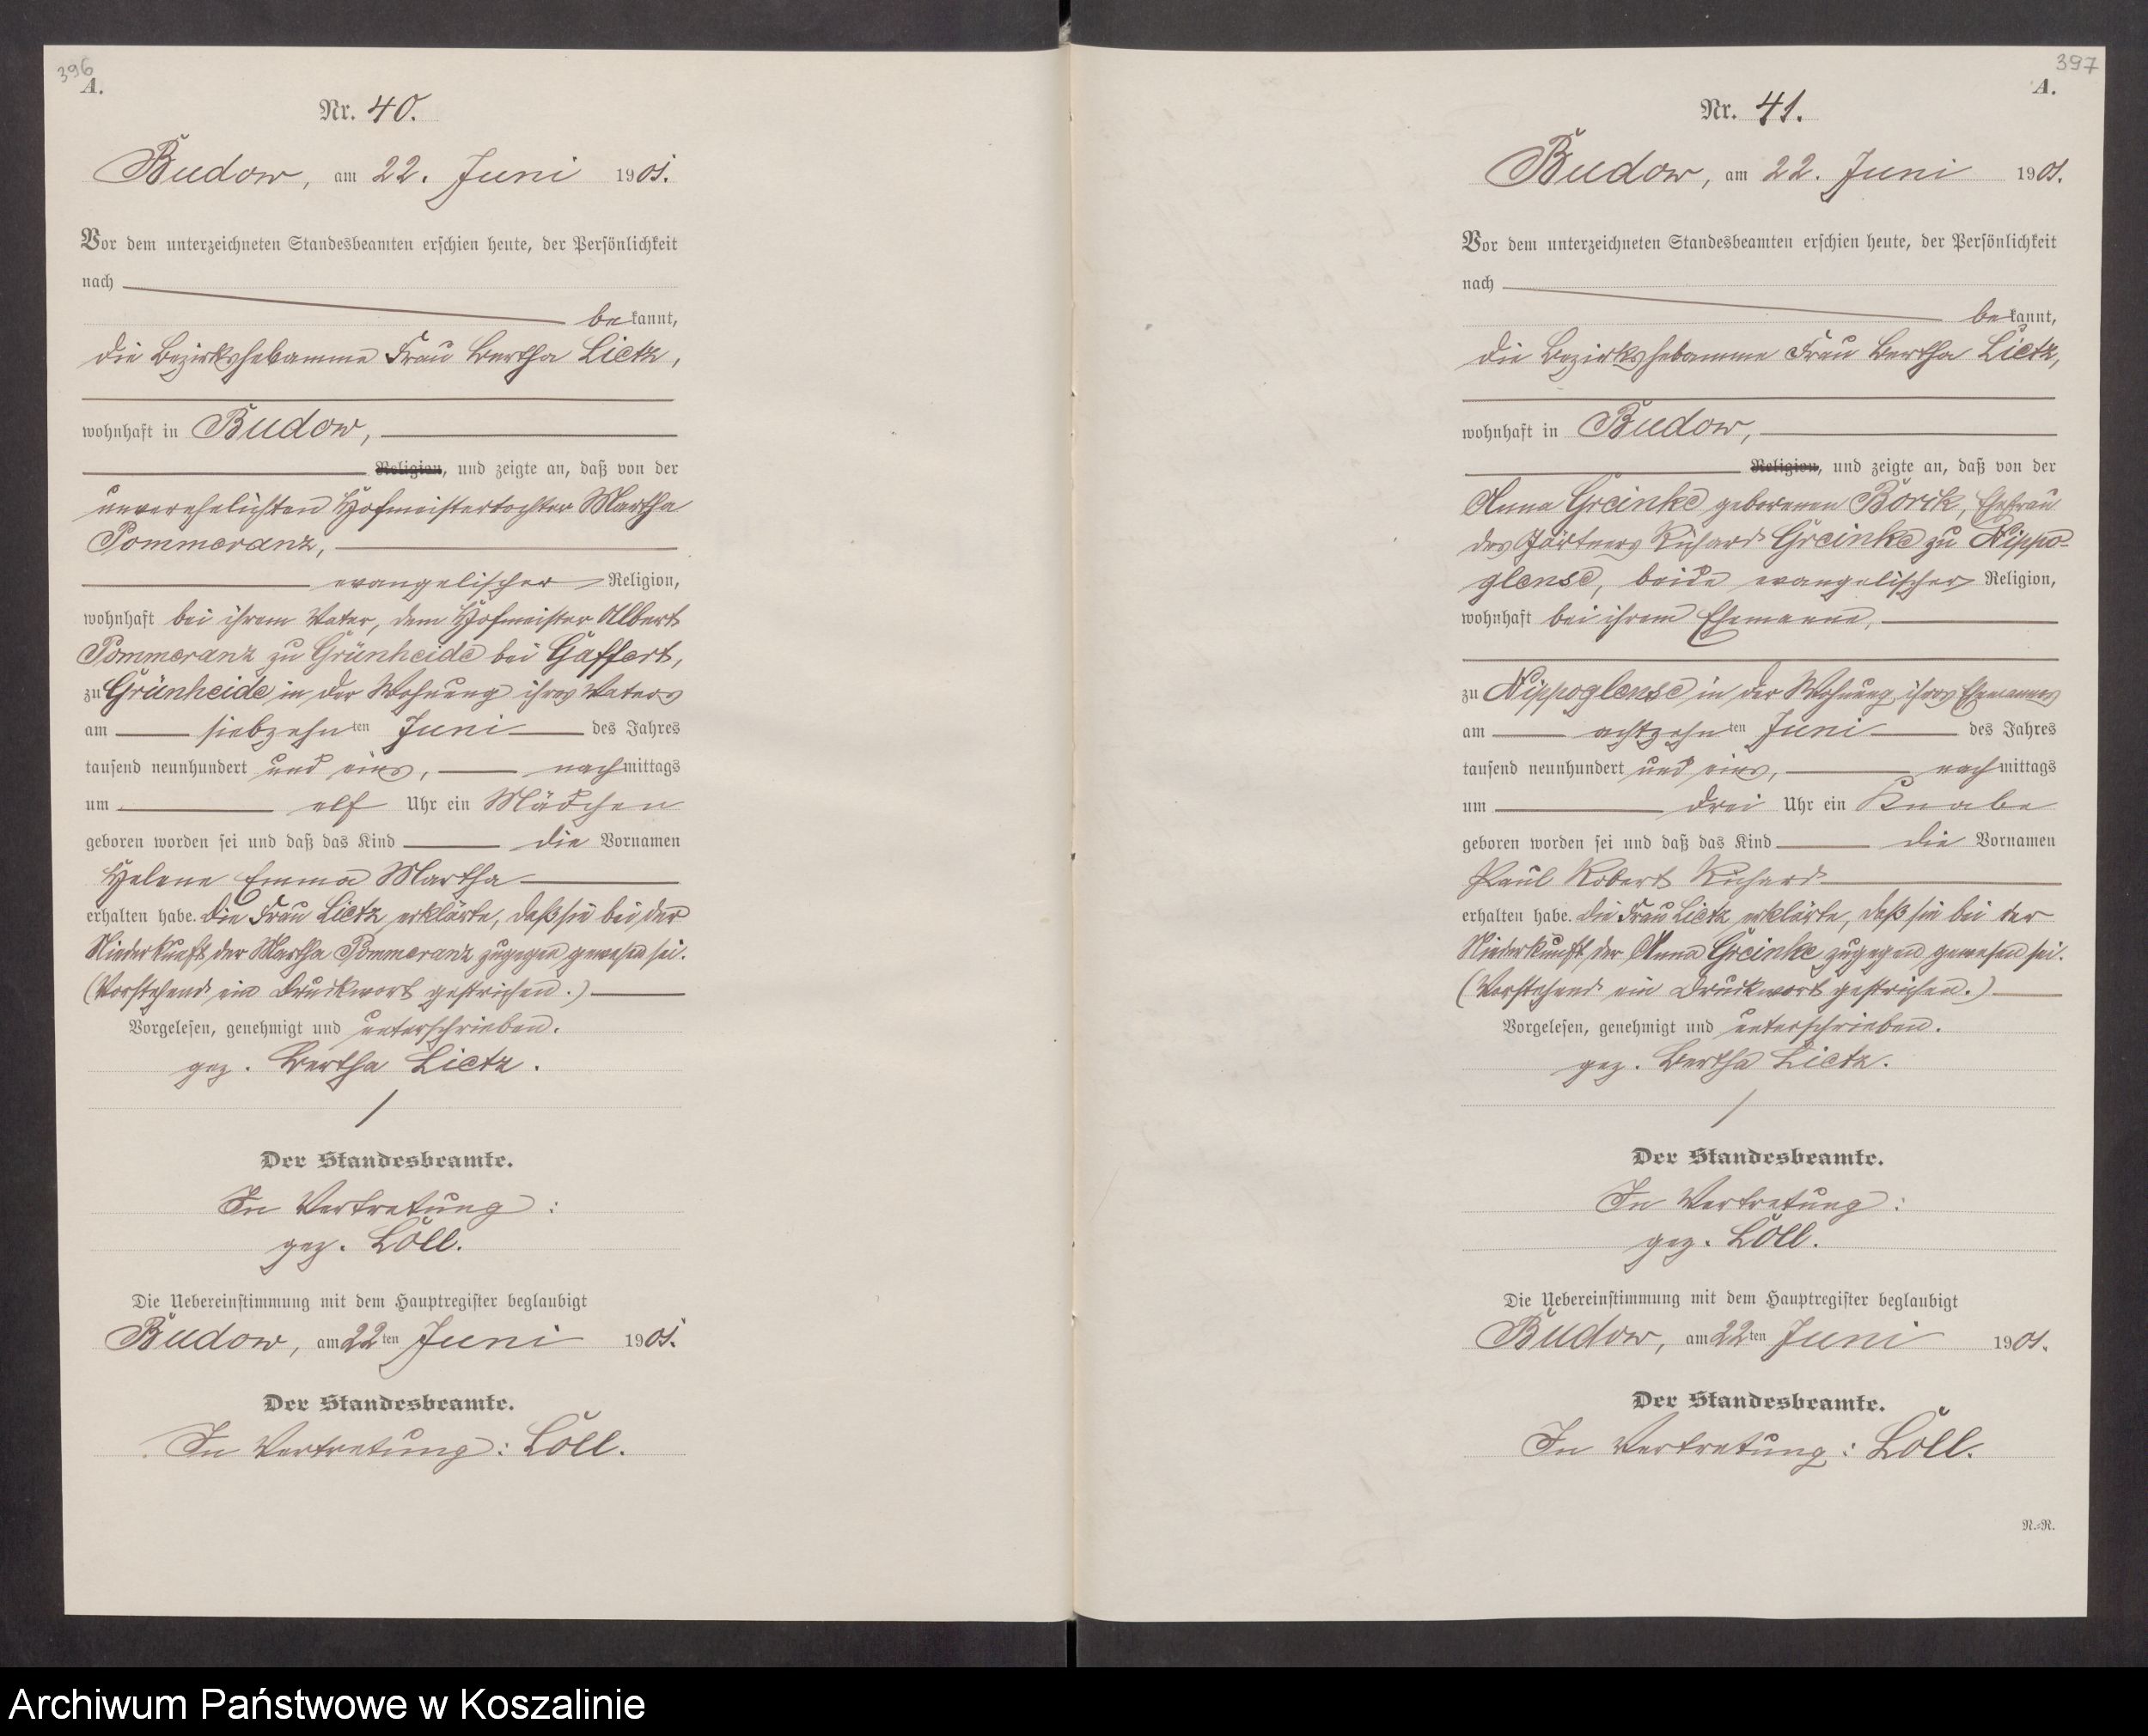 396
A.
Nr. 40.
Budow, am 22. Juni 1901.
Vor dem unterzeichneten Standesbeamten erschien heute, der Persönlichkeit
nach
bekannt,
die Bezirkshebamme Frau Bertha Lietz,
wohnhaft in Budow,
Religion, und zeigte an, daß von der
unverehelichten Hofmeistertochter Martha
Pommeranz,
evangelischer Religion,
wohnhaft bei ihrem Vater, dem Hofmeister Albert
Pommeranz zu Grünheide bei Gaffert,
zu Grünheide in der Wohnung ihres Vaters
am siebzehnten Juni des Jahres
tausend neunhundert und eins, nachmittags
um elf Uhr ein Mädchen
geboren worden sei und daß das Kind die Vornamen
Helene Emma Martha
erhalten habe. Die Frau Lietz erklärte, daß sie bei der
Niederkunft der Martha Pommeranz zugegen gewesen sei.
(Vorstehend ein Druckwort gestrichen.)
Vorgelesen, genehmigt und unterschrieben.
gez. Bertha Lietz.
Der Standesbeamte.
In Vertretung:
gez. Löll.
Die Uebereinstimmung mit dem Hauptregister beglaubigt
Budow, am 22ten Juni 1901.
Der Standesbeamte.
In Vertretung: Löll.
397
A.
Nr. 41.
Budow, am 22. Juni 1901.
Vor dem unterzeichneten Standesbeamten erschien heute, der Persönlichkeit
nach
bekannt,
die Bezirkshebamme Frau Bertha Lietz,
wohnhaft in Budow,
Religion, und zeigte an, daß von der
Anna Greinke geborenen Borck, Ehefrau
des Gärtners Richard Greinke zu Nippo-
glense, beide evangelischer Religion,
wohnhaft bei ihrem Ehemanne,
zu Nippoglense in der Wohnung ihres Ehemannes
am achtzehnten Juni des Jahres
tausend neunhundert und eins, nachmittags
um drei Uhr ein Knabe
geboren worden sei und daß das Kind die Vornamen
Paul Robert Richard
erhalten habe. Die Frau Lietz erklärte, daß sie bei der
Niederkunft der Anna Greinke zugegen gewesen sei.
(Vorstehend ein Druckwort gestrichen.)
Vorgelesen, genehmigt und unterschrieben.
gez. Bertha Lietz.
Der Standesbeamte.
In Vertretung:
gez. Löll.
Die Uebereinstimmung mit dem Hauptregister beglaubigt
Budow, am 22ten Juni 1901.
Der Standesbeamte.
In Vertretung: Löll.
N.=R.
Archiwum Państwowe w Koszalinie